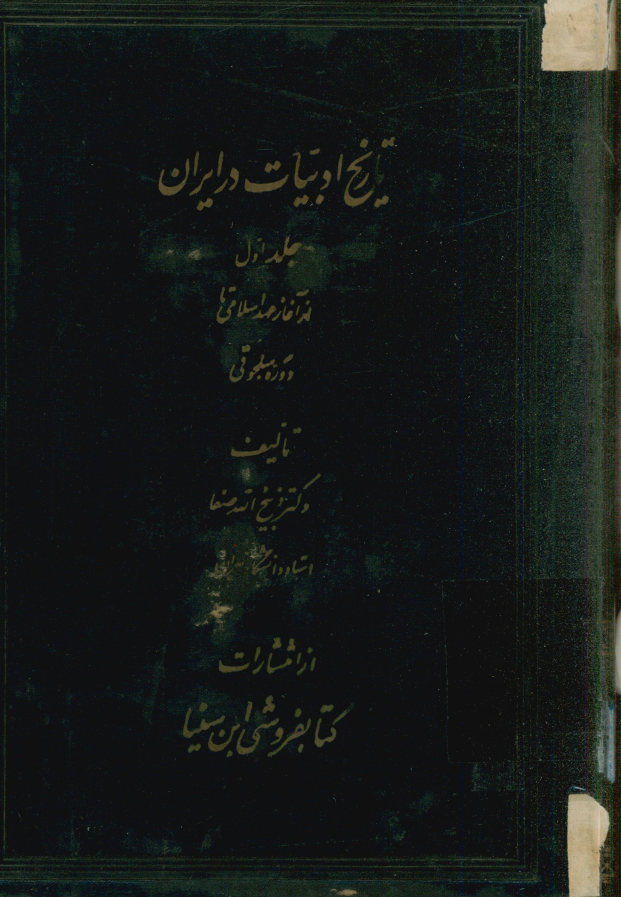 تاریخ ادبیات در ایران
جلد اول
از آغاز عهد اسلامی تا
دورهٔ سلجوقی
تألیف
دکتر ذبیح الله صفا
استاد دانشگاه
از انتشارات
کتابفروشی ابن سینا